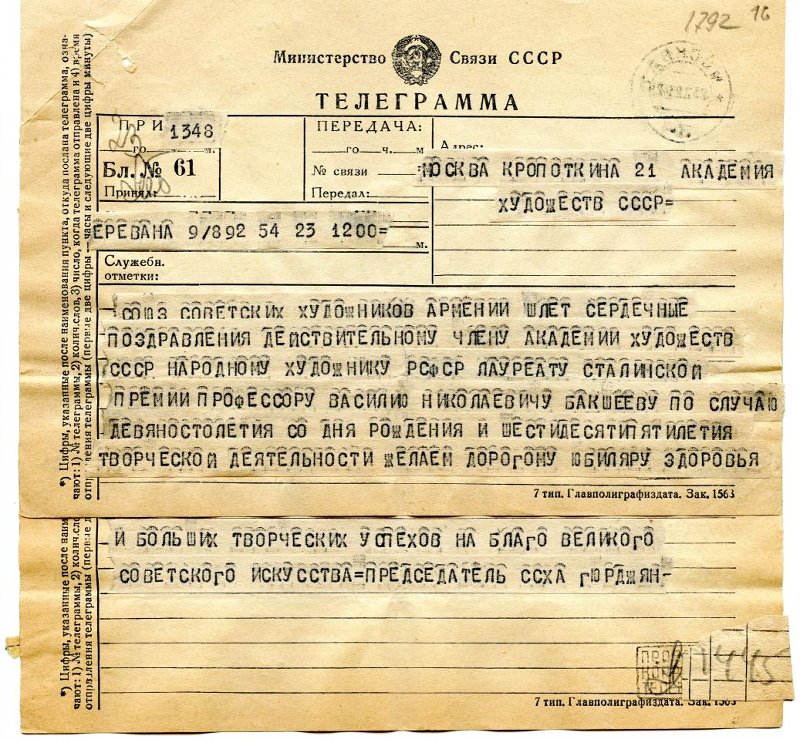 1792 16
Министерство Связи СССР
ТЕЛЕГРАММА
ПРИ 1348
го м.
Бл. № 61
Принял:
ПЕРЕДАЧА:
го ч. м.
№ связи
Передал:
Адрес:
МОСКВА КРОПОТКИНА 21 АКАДЕМИЯ
ХУДОЖЕСТВ СССР=
ЕРЕВАНА 9/892 54 23 1200=
м.
Служебн.
отметки:
СОЮЗ СОВЕТСКИХ ХУДОЖНИКОВ АРМЕНИИ ШЛЕТ СЕРДЕЧНЫЕ
ПОЗДРАВЛЕНИЯ ДЕЙСТВИТЕЛЬНОМУ ЧЛЕНУ АКАДЕМИИ ХУДОЖЕСТВ
СССР НАРОДНОМУ ХУДОЖНИКУ РСФСР ЛАУРЕАТУ СТАЛИНСКОЙ
ПРЕМИИ ПРОФЕССОРУ ВАСИЛИЮ НИКОЛАЕВИЧУ БАКШЕЕВУ ПО СЛУЧАЮ
ДЕВЯНОСТОЛЕТИЯ СО ДНЯ РОЖДЕНИЯ И ШЕСТИДЕСЯТИПЯТИЛЕТИЯ
ТВОРЧЕСКОЙ ДЕЯТЕЛЬНОСТИ ЖЕЛАЕМ ДОРОГОМУ ЮБИЛЯРУ ЗДОРОВЬЯ
7 тип. Главполиграфиздата. Зак. 1563
И БОЛЬШИХ ТВОРЧЕСКИХ УСПЕХОВ НА БЛАГО ВЕЛИКОГО
СОВЕТСКОГО ИСКУССТВА=ПРЕДСЕДАТЕЛЬ ССХА ГЮРДЖЯН-
7 тип. Главполиграфиздата. Зак. 1563
*) Цифры, указанные после наименования пункта, откуда послана телеграмма, озна-
чают: 1) № телеграммы, 2) колич. слов, 3) число, когда телеграмма отправлена и 4) время
отправления телеграммы (первые две цифры — часы и следующие две цифры минуты)
*) Цифры, указанные после наим
чают: 1) № телеграммы, 2) колич. сло
отправления телеграммы (первые д